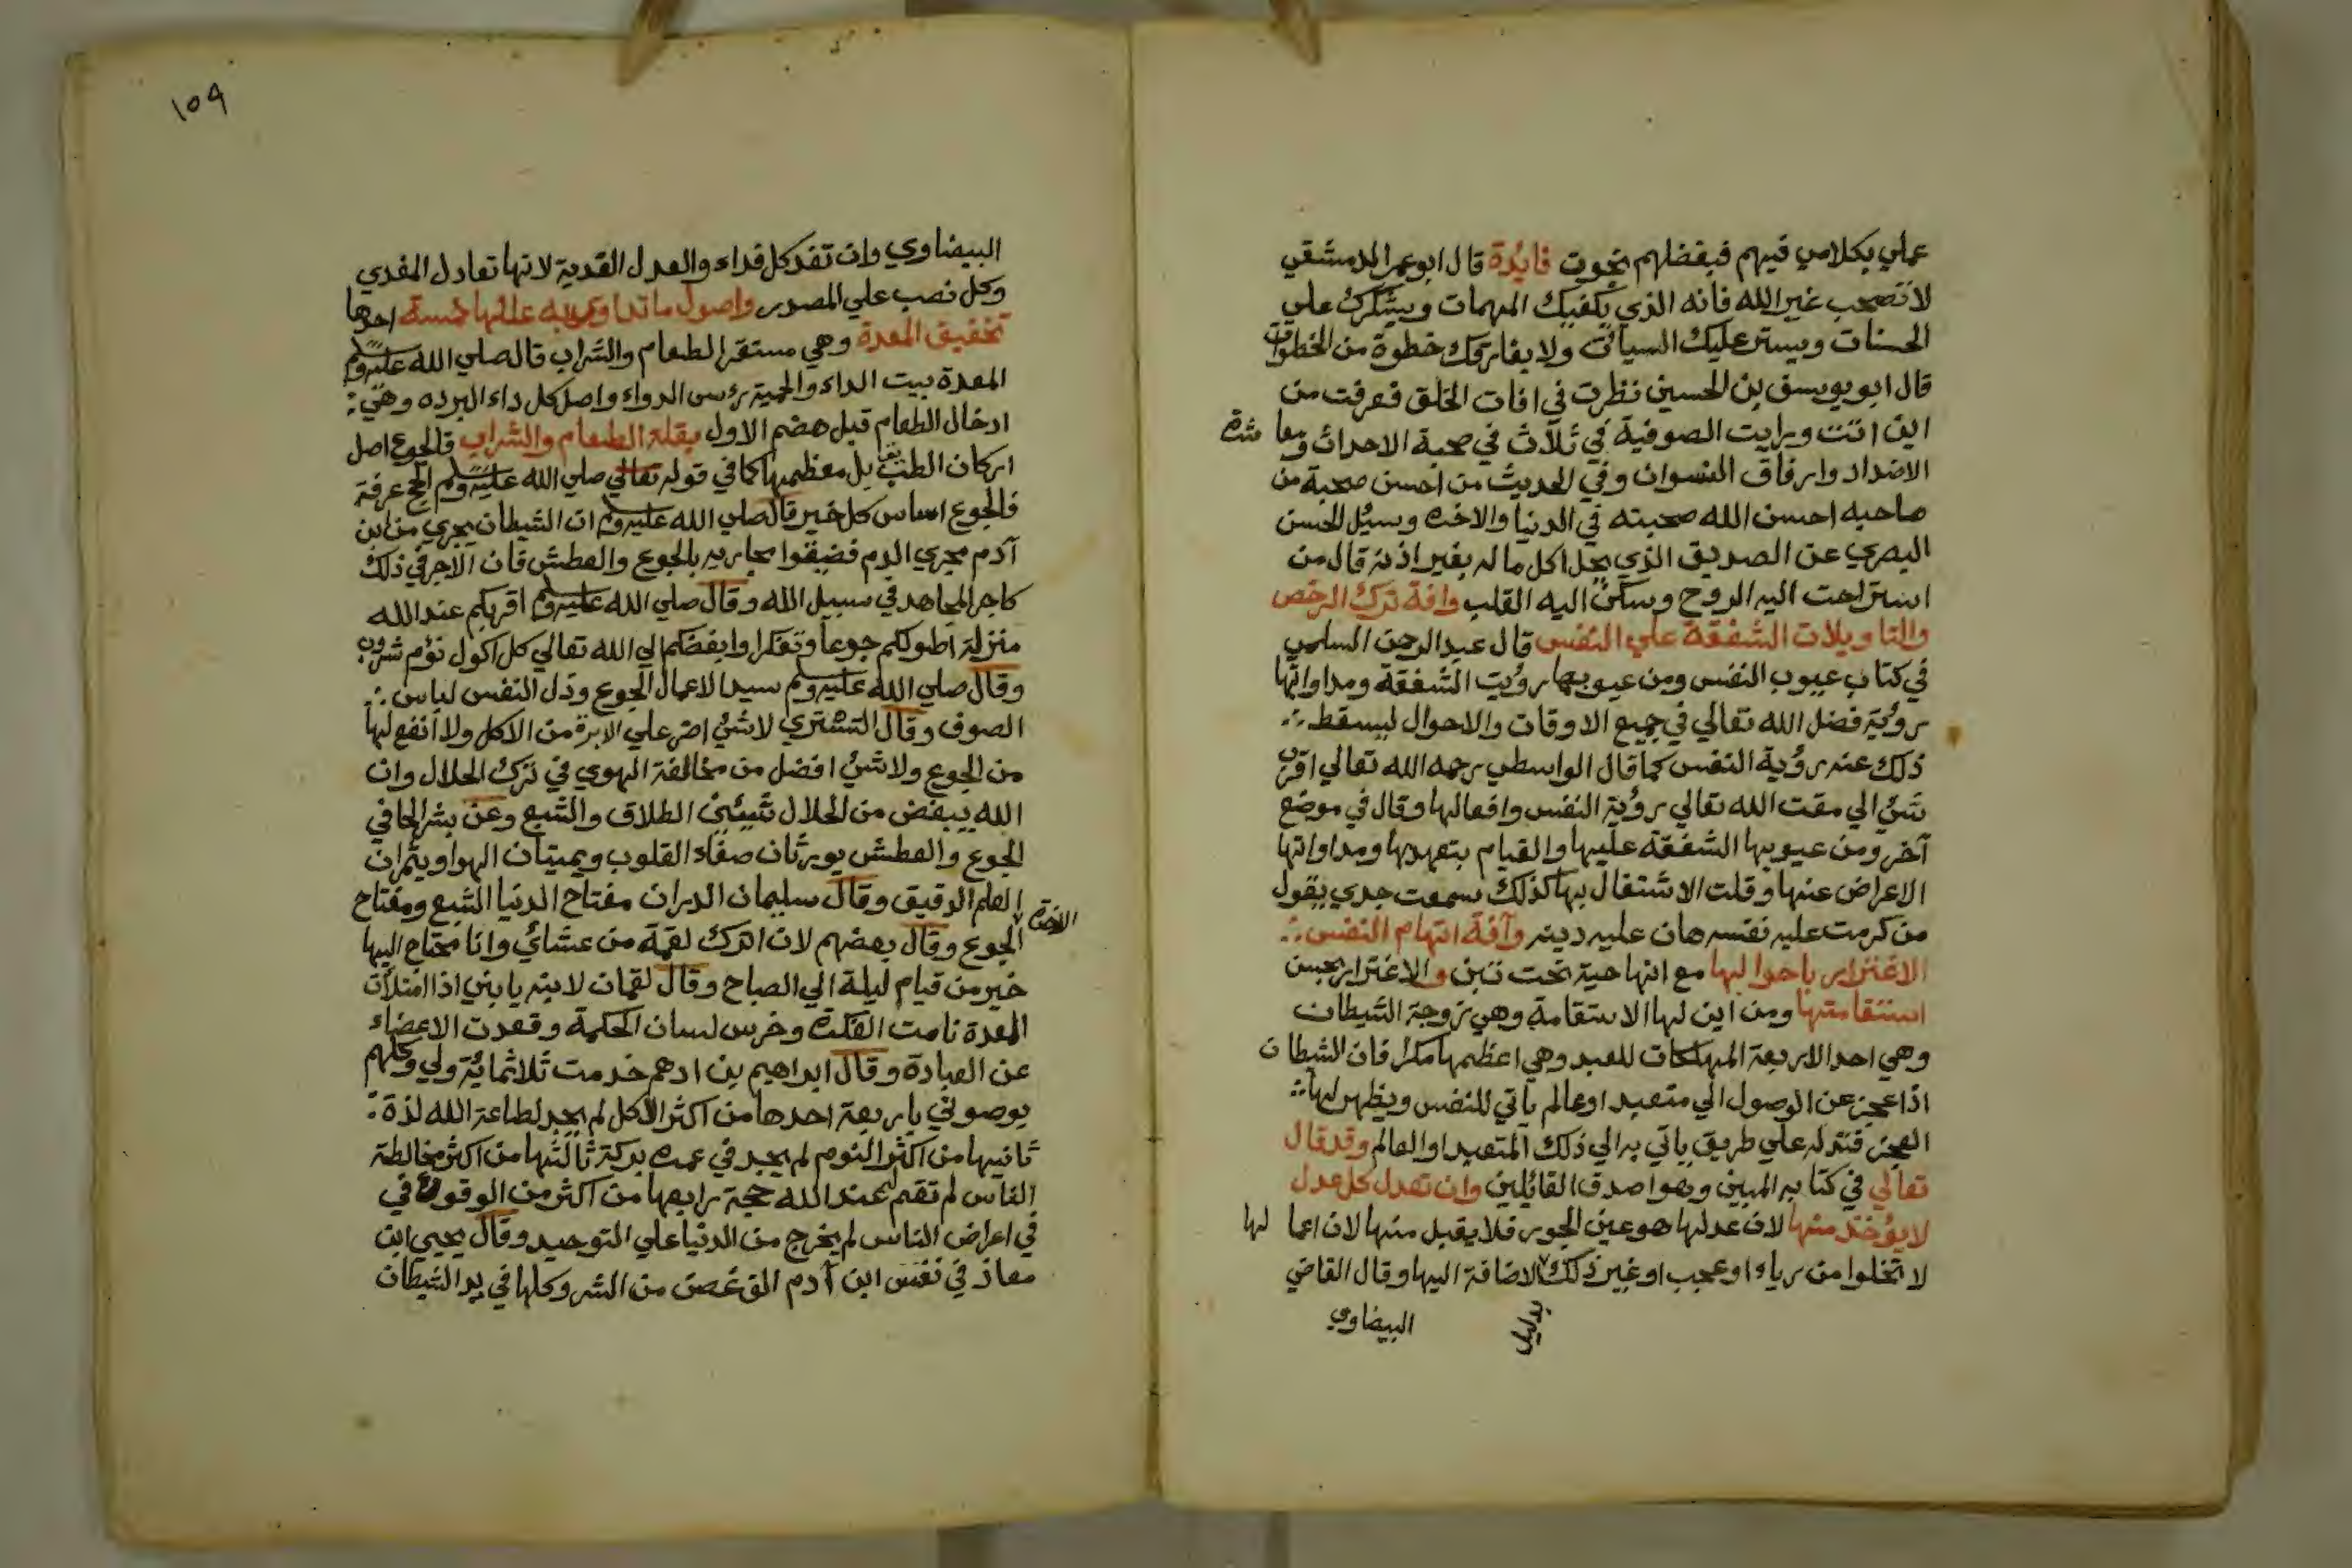 علي بكلامي فيهم فبفضلهم نجوت فايدة قال ابو عمر الدمشقي
لا تصحب غير الله فانه الذي يكفيك المهمات ويشكرك علي
الحسنات ويستر عليك السيات ولا يفارقك خطوة من الخطوات
قال ابو يوسف بن الحسين نظرت في افات الخلق فعرفت من
اين اتت ورايت الصوفية في ثلاث في صحبة الاحداث ومعاشرة
الاضداد وارفاق النسوان وفي الحديث من احسن صحبة من
صاحبه احسن الله صحبته في الدنيا والاخره وسيل الحسن
البصري عن الصديق الذي يحل اكل ماله بغير اذنه قال من
استراحت اليه الروح وسكن اليه القلب وافة ترك الرخص
والتاويلات الشفقة علي النفس قال عبد الرحمن السلمي
في كتاب عيوب النفس ومن عيوبها رؤيت الشفقة ومداواتها
رؤية فضل الله تعالي في جميع الاوقات والاحوال ليسقط
ذلك عنه رؤية النفس كما قال الواسطي رحمه الله تعالي اقرب
شئ الي مقت الله تعالي رؤية النفس وافعالها وقال في موضع
آخر ومن عيوبها الشفقة عليها والقيام بتعهدها ومداواتها
الاعراض عنها وقلت الاشتغال بها كذلك سمعت جدي يقول
من كرمت عليه نفسه هان عليه دينه وآفة اتهام النفس
الاغترار باحوالها مع انها حية تحت تبن والاغترار بحسن
استقامتها ومن اين لها الاستقامة وهي زوجة الشيطان
وهي احد الاربعة المهلكات للعبد وهي اعظمها مكرا فان الشيطان
اذا عجز عن الوصول الي متعبد او عالم ياتي للنفس ويظهر لها
العجز فتدله علي طريق ياتي به الي ذلك المتعبد او العالم وقد قال
تعالي في كتابه المبين وهو اصدق القائلين وان تعدل كل عدل
لا يؤخذ منها لان عدلها هو عين الجور فلا يقبل منها لان اعمالها
لا تخلوا من رياء او عجب او غير ذلك بدليل الاضافة اليها وقال القاضي
البيضاوي
١٥٩
البيضاوي وان تفد كل فداء والعدل الفدية لانها تعادل المفدي
وكل نصب علي المصدر واصول ما تداوي به عللها خمسة احدها
تخفيف المعدة وهي مستقر الطعام والشراب قال صلي الله عليه وسلم
المعدة بيت الداء والحمية رؤس الدواء واصل كل داء البرده وهي
ادخال الطعام قبل هضم الاول بقلة الطعام والشراب فالجوع اصل
اركان الطب بل معظمها كما في قوله صلي الله عليه وسلم الحج عرفة
فالجوع اساس كل خير قال صلي الله عليه وسلم ان الشيطان يجري من ابن
آدم مجري الدم فضيقوا مجاريه بالجوع والعطش فان الاجر في ذلك
كاجر المجاهد في سبيل الله وقال صلي الله عليه وسلم اقربكم عند الله
منزلة اطولكم جوعا وتفكرا وابغضكم الي الله تعالي كل اكول نؤم شروب
وقال صلي الله عليه وسلم سيد الاعمال الجوع وذل النفس لباس
الصوف وقال التستري لا شئ اضر علي الابرة من الاكل ولا انفع لها
من الجوع ولا شئ افضل من مخالفة الهوي في ترك الحلال وان
الله يبغض من الحلال شيئين الطلاق والشبع وعن بشر الحافي
الجوع والعطش يورثان صفاء القلوب ويميتان الهوا ويثمران
العلم الدقيق وقال سليمان الداران مفتاح الدنيا الشبع ومفتاح الاخرة
الجوع وقال بعضهم لان اترك لقمة من عشائ وانا محتاج اليها
خير من قيام ليلة الي الصباح وقال لقمان لابنه يا بني اذا امتلأت
المعدة نامت الفكرة وخرس لسان الحكمة وقعدت الاعضاء
عن العبادة وقال ابراهيم بن ادهم خدمت ثلاثماية ولي وكلهم
يوصوني باربعة احدها من اكثر الاكل لم يجد لطاعة الله لذة
ثانيها من اكثر النوم لم يجد في عمره بركة ثالثها من اكثر مخالطة
الناس لم تقم عند الله حجة رابعها من اكثر من الوقوع في
في اعراض الناس لم يخرج من الدنيا علي التوحيد وقال يحيي ابن
معاذ في نفس ابن آدم الف غصن من الشر وكلها في يد الشيطان